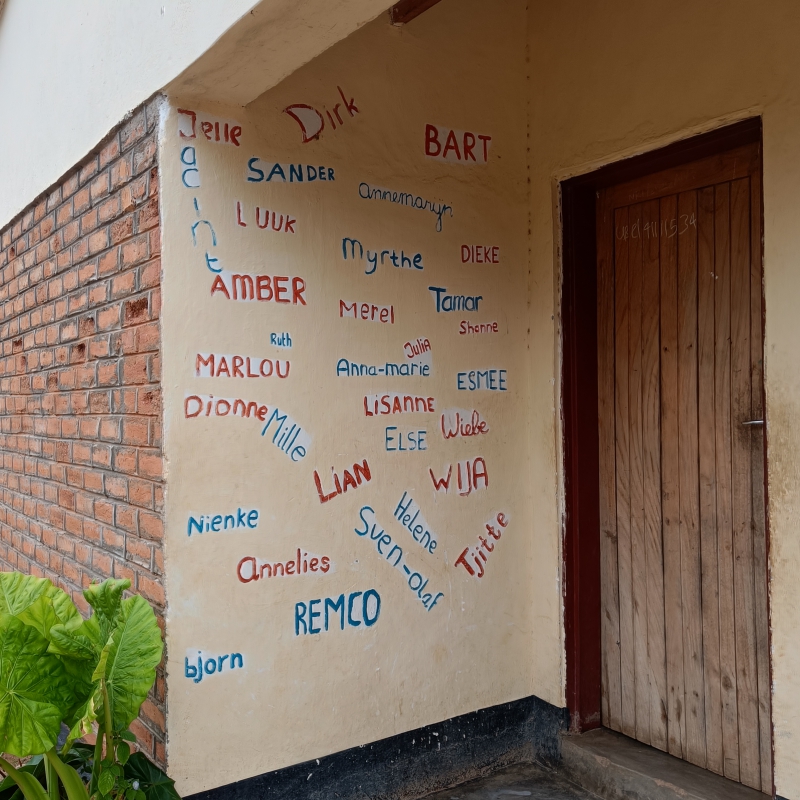 Jelle
Dirk
BART
Jacint
SANDER
annemarijn
LUUK
Myrthe
DIEKE
AMBER
Merel
Tamar
Shanne
Ruth
Julia
MARLOU
Anna-marie
ESMEE
Dionne
Mille
LiSANNE
ELSE
Wiebe
LIAN
WIJA
Nienke
Helene
Sven-Olaf
Tjitte
Annelies
REMCO
bjorn